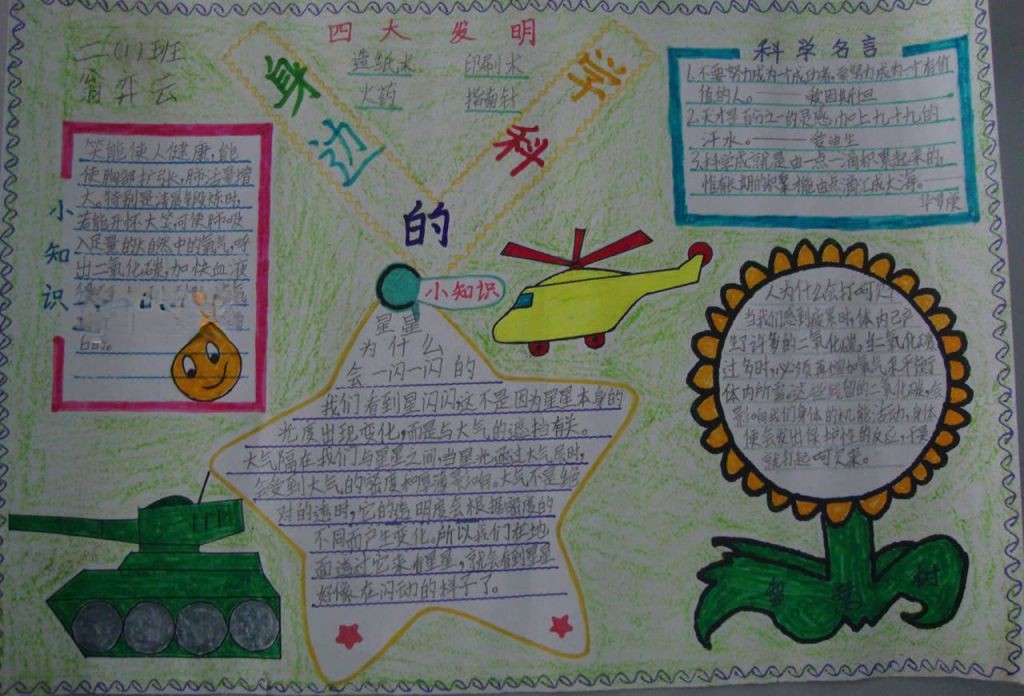 二(1)班
翁弈云
四大发明
造纸术 印刷术
火药 指南针
身边的科学
科学名言
1.不要努力成为一个成功者,要努力成为一个有价
值的人。——爱因斯坦
2.天才是百分之一的灵感,加上九十九的
汗水。——爱迪生
3.科学成就是由一点一滴积累起来的,
惟有长期的积聚才能由点滴汇成大海。
华罗庚
小知识
笑能使人健康,能
使胸部扩张,肺活量增
大。特别是清晨锻炼时,
若能开怀大笑,可使肺吸
入足量的大自然中的氧气,呼
出二氧化碳,加快血液
小知识
星星
为什么
会一闪一闪的
我们看到星闪闪,这不是因为星星本身的
光度出现变化,而是与大气的遮挡有关。
大气隔在我们与星星之间,当星光通过大气层时,
会受到大气的密度和厚薄影响。大气不是绝
对的透明,它的透明度会根据密度的
不同而产生变化。所以我们在地
面透过它来看星星,就会看到星星
好像在闪动的样子了。
人为什么会打呵欠
当我们感到疲累时,体内已产
生了许多的二氧化碳。当二氧化碳
过多时,必须再增加氧气来平衡
体内所需。这些残留的二氧化碳,会
影响我们身体的机能活动,身体
便会发出保护性的反应,于是
就打起呵欠来。